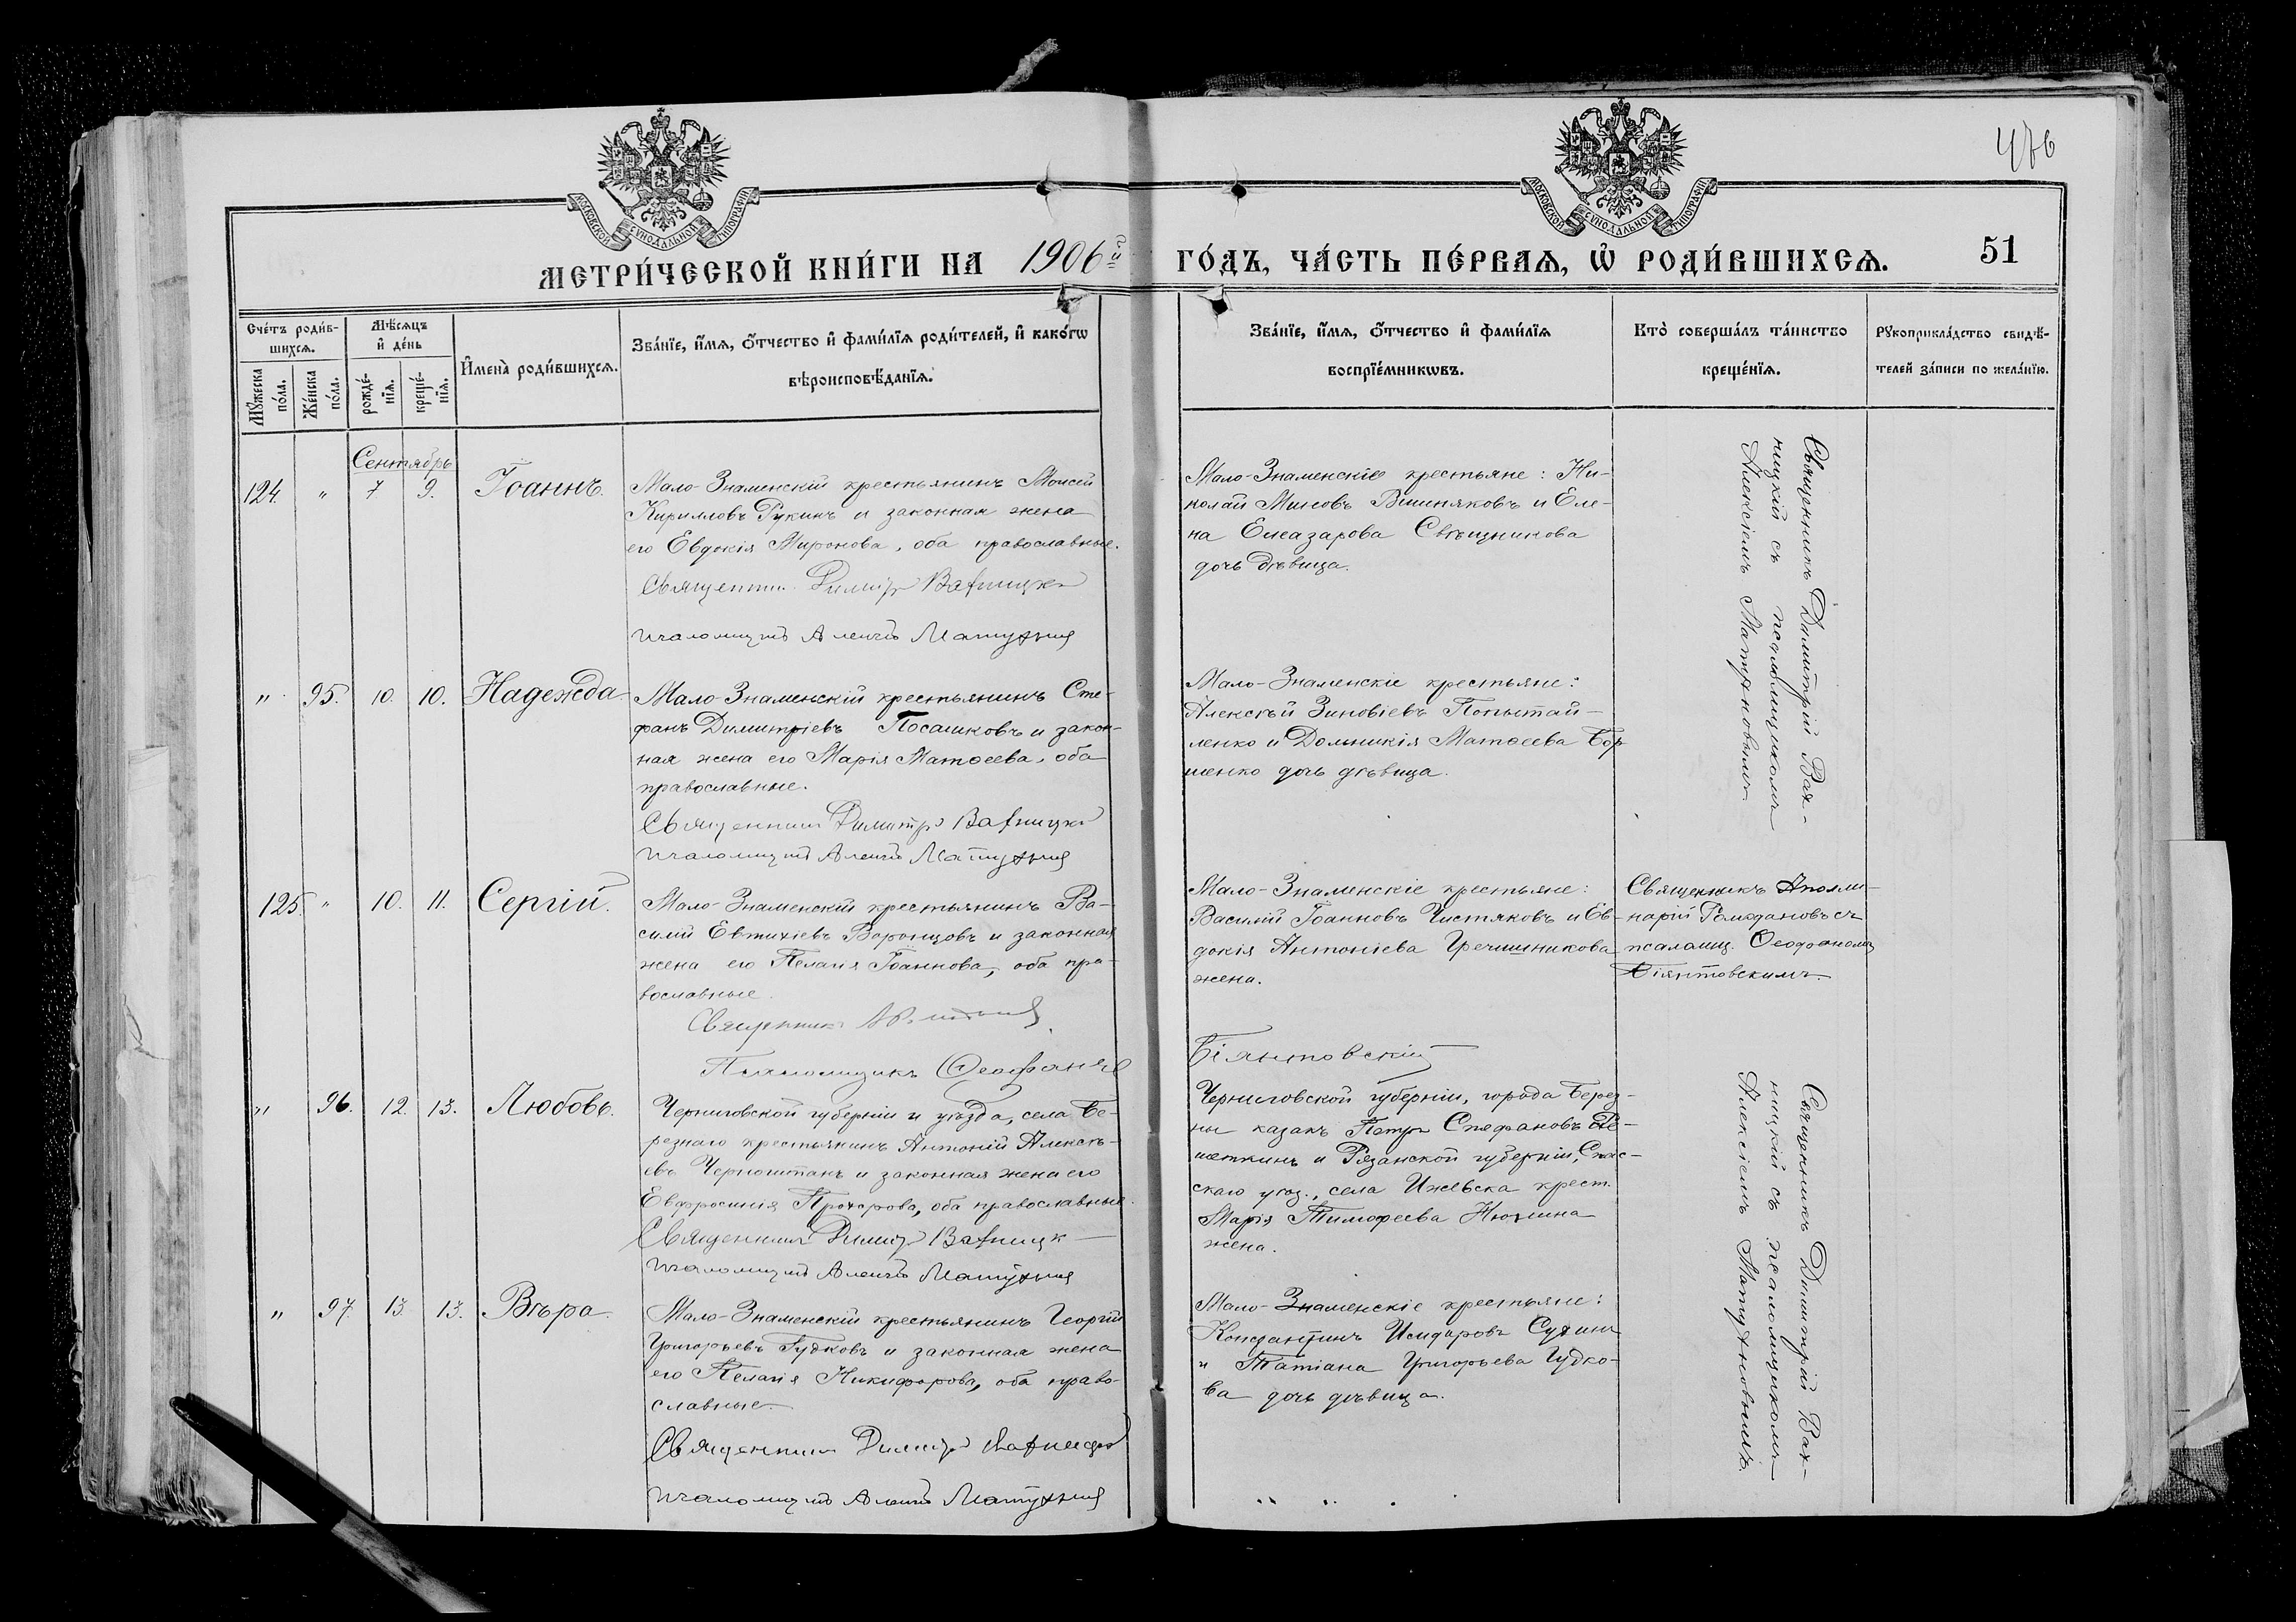 476
МОСКОВСКОЙ СѴНОДАЛЬНОЙ ТИПОГРАФІИ
МОСКОВСКОЙ СѴНОДАЛЬНОЙ ТИПОГРАФІИ
МЕТРИ́ЧЕСКОЙ КНИ́ГИ НА 1906й ГО́ДЪ, ЧА́СТЬ ПЕ́РВАѦ, Ѡ҆ РОДИ́ВШИХСѦ. 51
Сче́тъ роди́в-
шихсѧ.
Мꙋ́жеска по́ла.
Же́нска по́ла.
Мѣ́сѧцъ и҆ де́нь
рожде́-нїѧ.
креще́-нїѧ.
И҆мена̀ роди́вшихсѧ.
Зва́нїе, и҆́мѧ, ѻ҆́тчество и҆ фами́лїѧ роди́телей, и҆ како́гѡ
вѣроисповѣ́данїѧ.
Зва́нїе, и҆́мѧ, ѻ҆́тчество и҆ фами́лїѧ
воспрїе́мникѡвъ.
Кто̀ соверша́лъ та́инство
креще́нїѧ.
Рꙋкоприкла́дство свидѣ́-
телей за́писи по жела́нїю.
Сентябрь
124. " 7 9. Іоаннъ.
Мало-Знаменскій крестьянинъ Моисей
Кирилловъ Рукинъ и законная жена
его Евдокія Миронова, оба православные.
Священник Димитр Вахницкій
псаломщикъ Алексѣй Матухновъ
Мало-Знаменскіе крестьяне: Ни-
колай Вишняковъ и Еле-
на Елеазарова Свѣщникова
дочь дѣвица.
Священникъ Димитрій Вах-
ницкій съ псаломщикомъ
Алексіемъ Матухновымъ.
" 95. 10. 10. Надежда
Мало-Знаменскій крестьянинъ Сте-
фанъ Димитріевъ Посашковъ и закон-
ная жена его Марія Матѳеева, оба
православные.
Священник Димитр Вахницкій
псаломщикъ Алексѣй Матухновъ
Мало-Знаменскіе крестьяне:
Алексѣй Зиновіевъ Попытай-
ленко и Домникія Матѳеева Бор
шенко дочь дѣвица.
125. " 10. 11. Сергій.
Мало-Знаменскій крестьянинъ Ва-
силій Евтихіевъ Воронцовъ и законная
жена его Пелагія Іоаннова, оба пра-
вославные.
Священник
Псаломщикъ Ѳеофанъ
Біянтовскій
Мало-Знаменскіе крестьяне:
Василій Іоанновъ Чистяковъ и Ев-
докія Антоніева Гречишникова
жена.
Священникъ Аполли-
нарій Ромодановъ съ
псаломщ. Ѳеофаномъ
Біянтовскимъ.
" 96. 12. 13. Любовь.
Черниговской губерніи и уѣзда, села Бе-
резнаго крестьянинъ Антоній Алексѣ-
евъ Черноштанъ и законная жена его
Евфросинія Прохорова, оба православные.
Священник Димитр Вахницк
псаломщикъ Алексѣй Матухновъ
Черниговской губерніи, города Берез-
ны казакъ Петръ Стефановъ Ре-
шеткинъ и Рязанской губерніи, Спас-
скаго уѣз., села Ижевска крест.
Марія Тимофеева Нюхина
жена.
Священникъ Димитрій Вах-
ницкій съ псаломщикомъ
Алексіемъ Матухновымъ.
" 97 13. 13. Вѣра.
Мало-Знаменскій крестьянинъ Георгій
Григорьевъ Гудковъ и законная жена
его Пелагія Никифорова, оба право-
славные.
Священник Димитр Вахницкій
псаломщикъ Алексѣй Матухновъ
Мало-Знаменскіе крестьяне:
Константинъ Исидоровъ Сухинъ
и Татіана Григорьева Гудко-
ва дочь дѣвица.